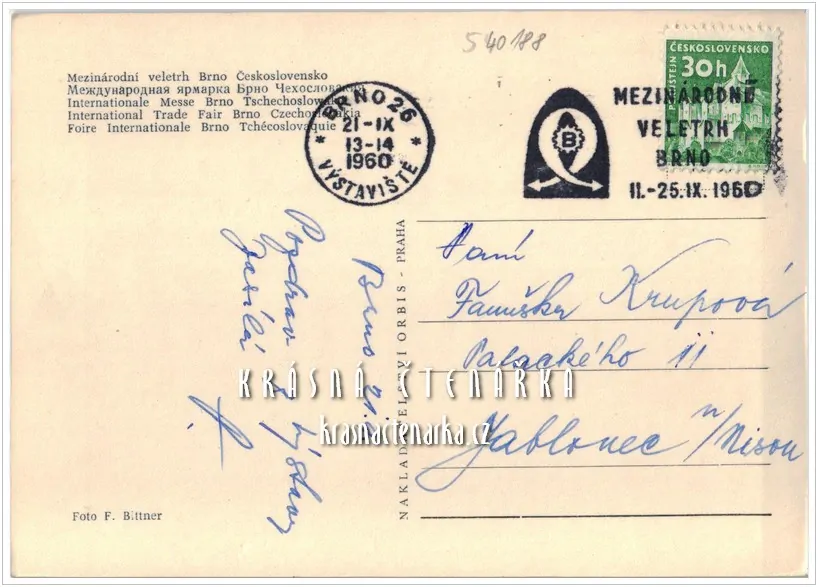 S 40188
ČESKOSLOVENSKO
30h
Mezinárodní veletrh Brno Československo
Международная ярмарка Брно Чехословакия
Internationale Messe Brno Tschechoslowakei
International Trade Fair Brno Czechoslovakia
Foire Internationale Brno Tchécoslovaquie
BRNO 26
21-IX
13-14
1960
* VÝSTAVIŠTĚ *
B
MEZINÁRODNÍ
VELETRH
BRNO
11.-25.IX.1960
Brno 21.
Pozdrav z výstavy
zasílá
Paní
Krupová
Palackého 11
Jablonec n/Nisou
NAKLADATELSTVÍ ORBIS - PRAHA
KRÁSNÁ ČTENÁRKA
krasnactenarka.cz
Foto F. Bittner